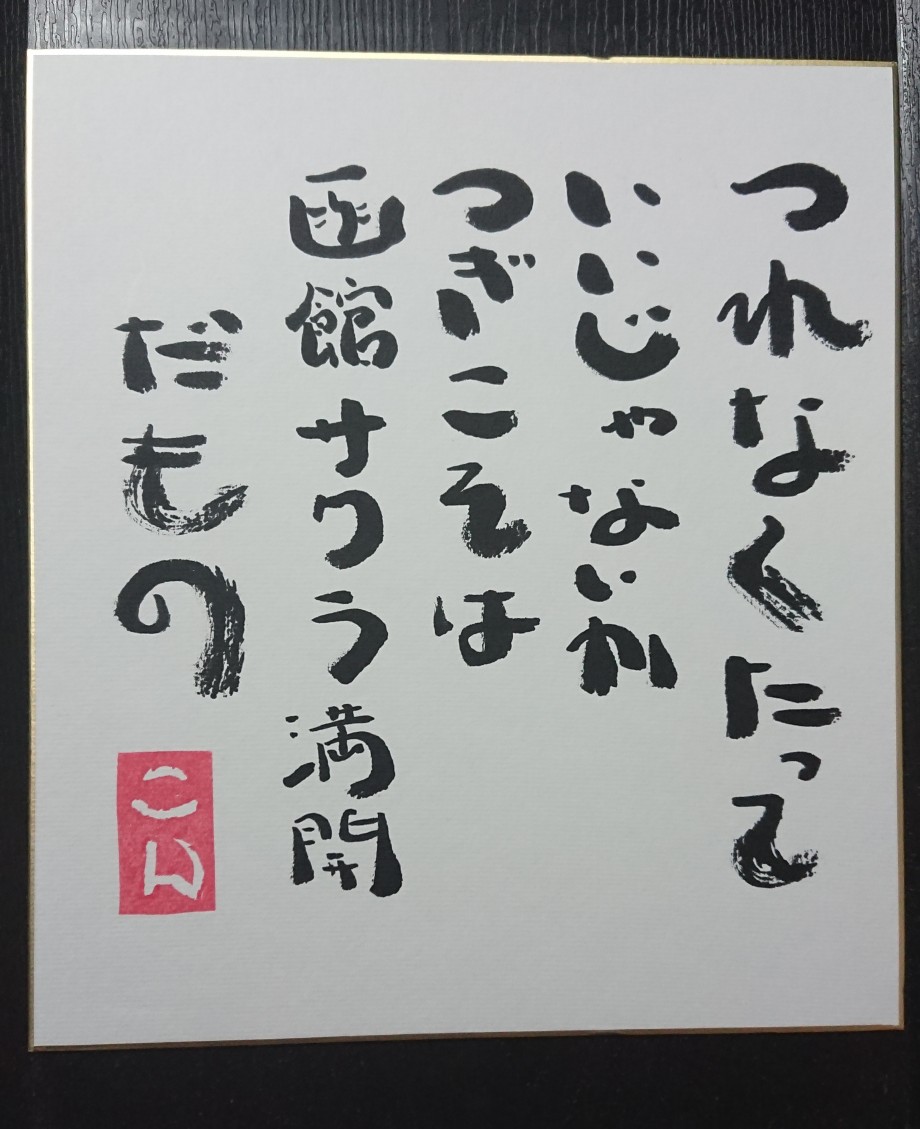 つれなくたって
いいじゃないか
つぎこそは
函館サクラ満開
だもの
こん